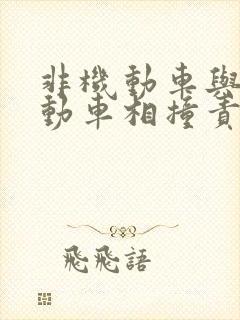 非機動車與
動車相撞責
飛飛語